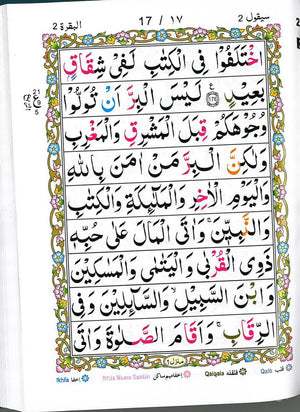 البقرة 2
17 / ١٧
سيقول 2
اخْتَلَفُوْا فِی الْكِتٰبِ لَفِیْ شِقَاقٍۭ
بَعِیْدٍ ﴿١٧٦﴾ لَیْسَ الْبِرَّ اَنْ تُوَلُّوْا
وُجُوْهَكُمْ قِبَلَ الْمَشْرِقِ وَالْمَغْرِبِ
وَلٰكِنَّ الْبِرَّ مَنْ اٰمَنَ بِاللّٰهِ
وَالْیَوْمِ الْاٰخِرِ وَالْمَلٰٓئِكَةِ وَالْكِتٰبِ
وَالنَّبِیّٖنَ ۚ وَاٰتَی الْمَالَ عَلٰی حُبِّهٖ
ذَوِی الْقُرْبٰی وَالْیَتٰمٰی وَالْمَسٰكِیْنَ
وَابْنَ السَّبِیْلِ ۙ وَالسَّآئِلِیْنَ وَفِی
الرِّقَابِ ۚ وَاَقَامَ الصَّلٰوةَ وَاٰتَی
منزل ١
Ikhfa اخفا
Ikhfa Meem Saakin اخفا میم ساکن
Qalqala قلقله
Qalb قلب